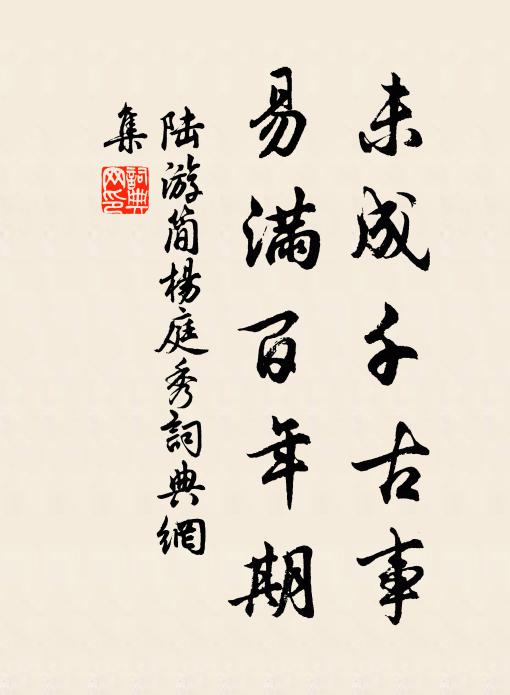 未成千古事
易滿百年期
陆游简楊庭秀詞典網
集
詞典網印